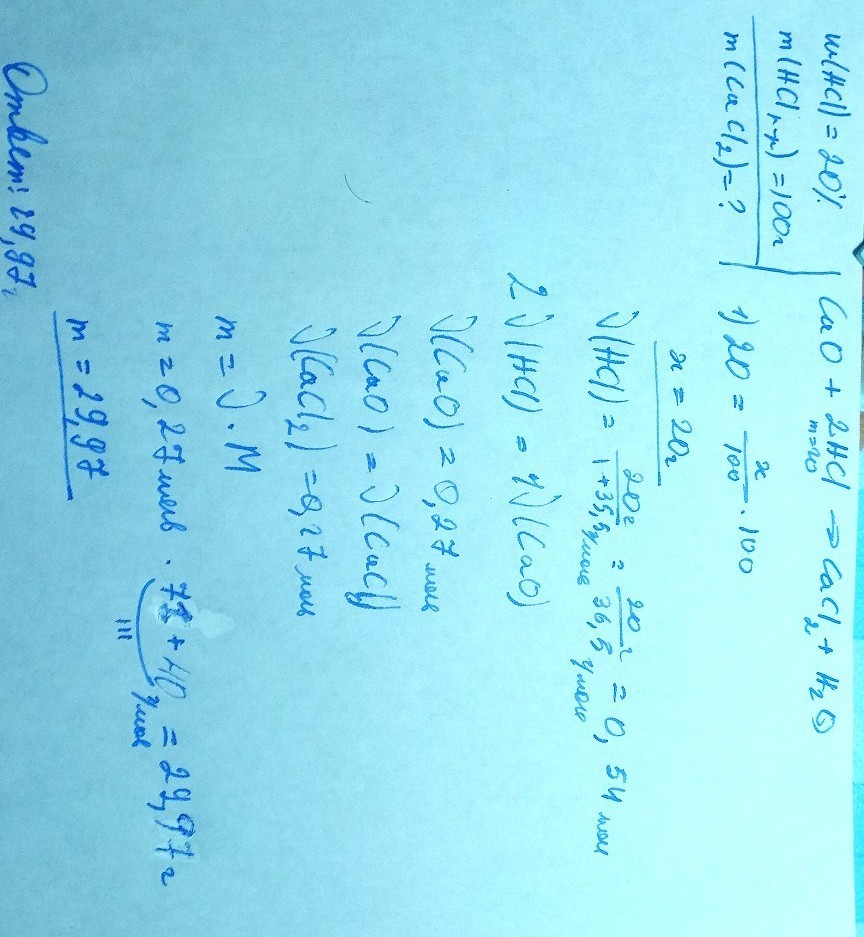 w(HCl) = 20%
m(HCl р-р) = 100г
m(CaCl₂) = ?
CaO + 2HCl → CaCl₂ + H₂O
m=20
1) 20 = x/100 · 100
x = 20г
ν(HCl) = 20г/1+35,5 г/моль = 20 г/36,5 г/моль = 0,54 моль
2ν(HCl) = 1ν(CaO)
ν(CaO) = 0,27 моль
ν(CaO) = ν(CaCl)
ν(CaCl₂) = 0,27 моль
m = ν · M
m = 0,27 моль · 71 + 40 г/моль = 29,97 г
111
m = 29,97
Ответ: 29,97г